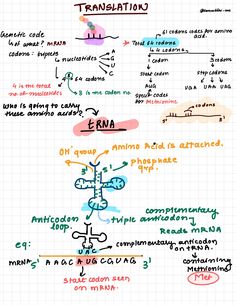 TRANSLATION
Genetic code
of what? mRNA
codons: triplets
nucleotides
A
G
U
C
4³
64 codons
4 is the total no. of nucleosides
3 is the codon no
61 codons codes for amino acid.
* Total 64 codons
codons
Start codon
Stop codons
AUG
UGA UAA UAG
codes for Methionine
Who is going to carry these amino acids?
tRNA
OH group
Amino Acid is attached.
phosphate grp.
3'
5'
Anticodon loop.
complementary
triple anticodon
Reads mRNA
eg:
UAC
complementary anticodon on tRNA.
mRNA 5' AAGCAUGCGUAG 3'
containing Methionine
Met
Start codon seen on mRNA.